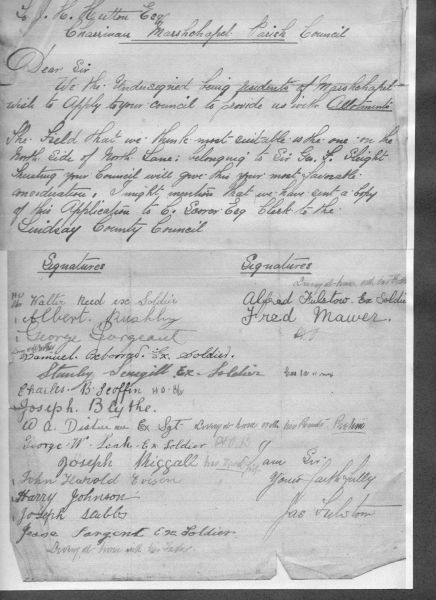 To J. H. Hutton Esq
Chairman Marshchapel Parish Council
Dear Sir
We the Undersigned being residents of Marshchapel
wish to Apply to your council to provide us with Allotments
The Field that we think most suitable is the one on the
North Side of North Lane; belonging to Sir Geo. F. Sleight
Trusting your Council will give this your most favourable
consideration, I might mention that we have sent a copy
of this Application to E. Scorer Esq Clerk to the
Lindsay County Council
Signatures Signatures
Walter Reed Ex Soldier
Alfred Fulstow. Ex Soldier
Albert Rushby
Fred Mawer.
George Sargeant
Samuel Osborne. Ex. Soldier.
Stanley Ex Soldier
Charles B
Joseph Blythe.
W A. Ex Sgt Living at home with his
George W. Leak Ex Soldier
Joseph Niggall
I am Sir
John Harold Evison
Yours faithfully
Harry Johnson
Jas Fulstow
Joseph Stubbs
Jesse Sargent Ex Soldier
Living at home with his Father